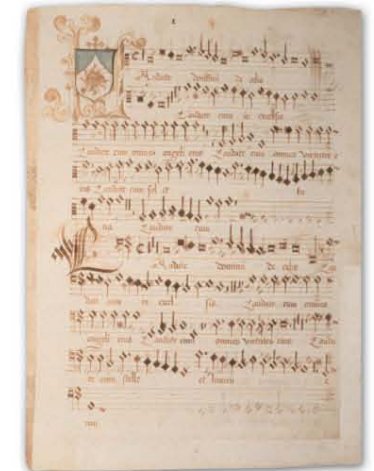 Audite dominū de celis
Laudate eum in excelsis
Laudate eum omnes angeli eius Laudate eum omnes virtutes e
ius Laudate eum sol et lu
na Laudate eum
Laudate dominū de celis Lau
date eum in excel sis Laudate eum omnes
angeli eius Laudate eum omnes virtutes eius Lauda
te eum stelle et lumen